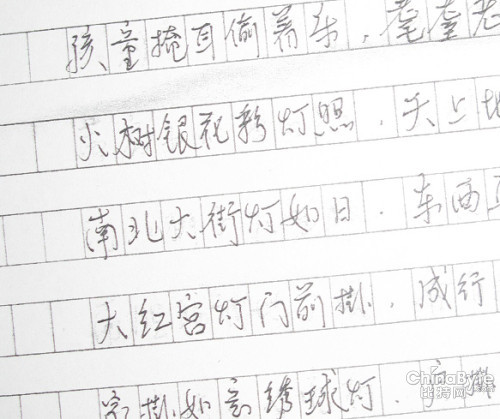 孩童掩耳偷着乐,耄耋老
火树银花彩灯照,天上地
南北大街灯如日,东西
大红宫灯门前挂,成行
挂如意绣球灯,户
ChinaByte
比特网